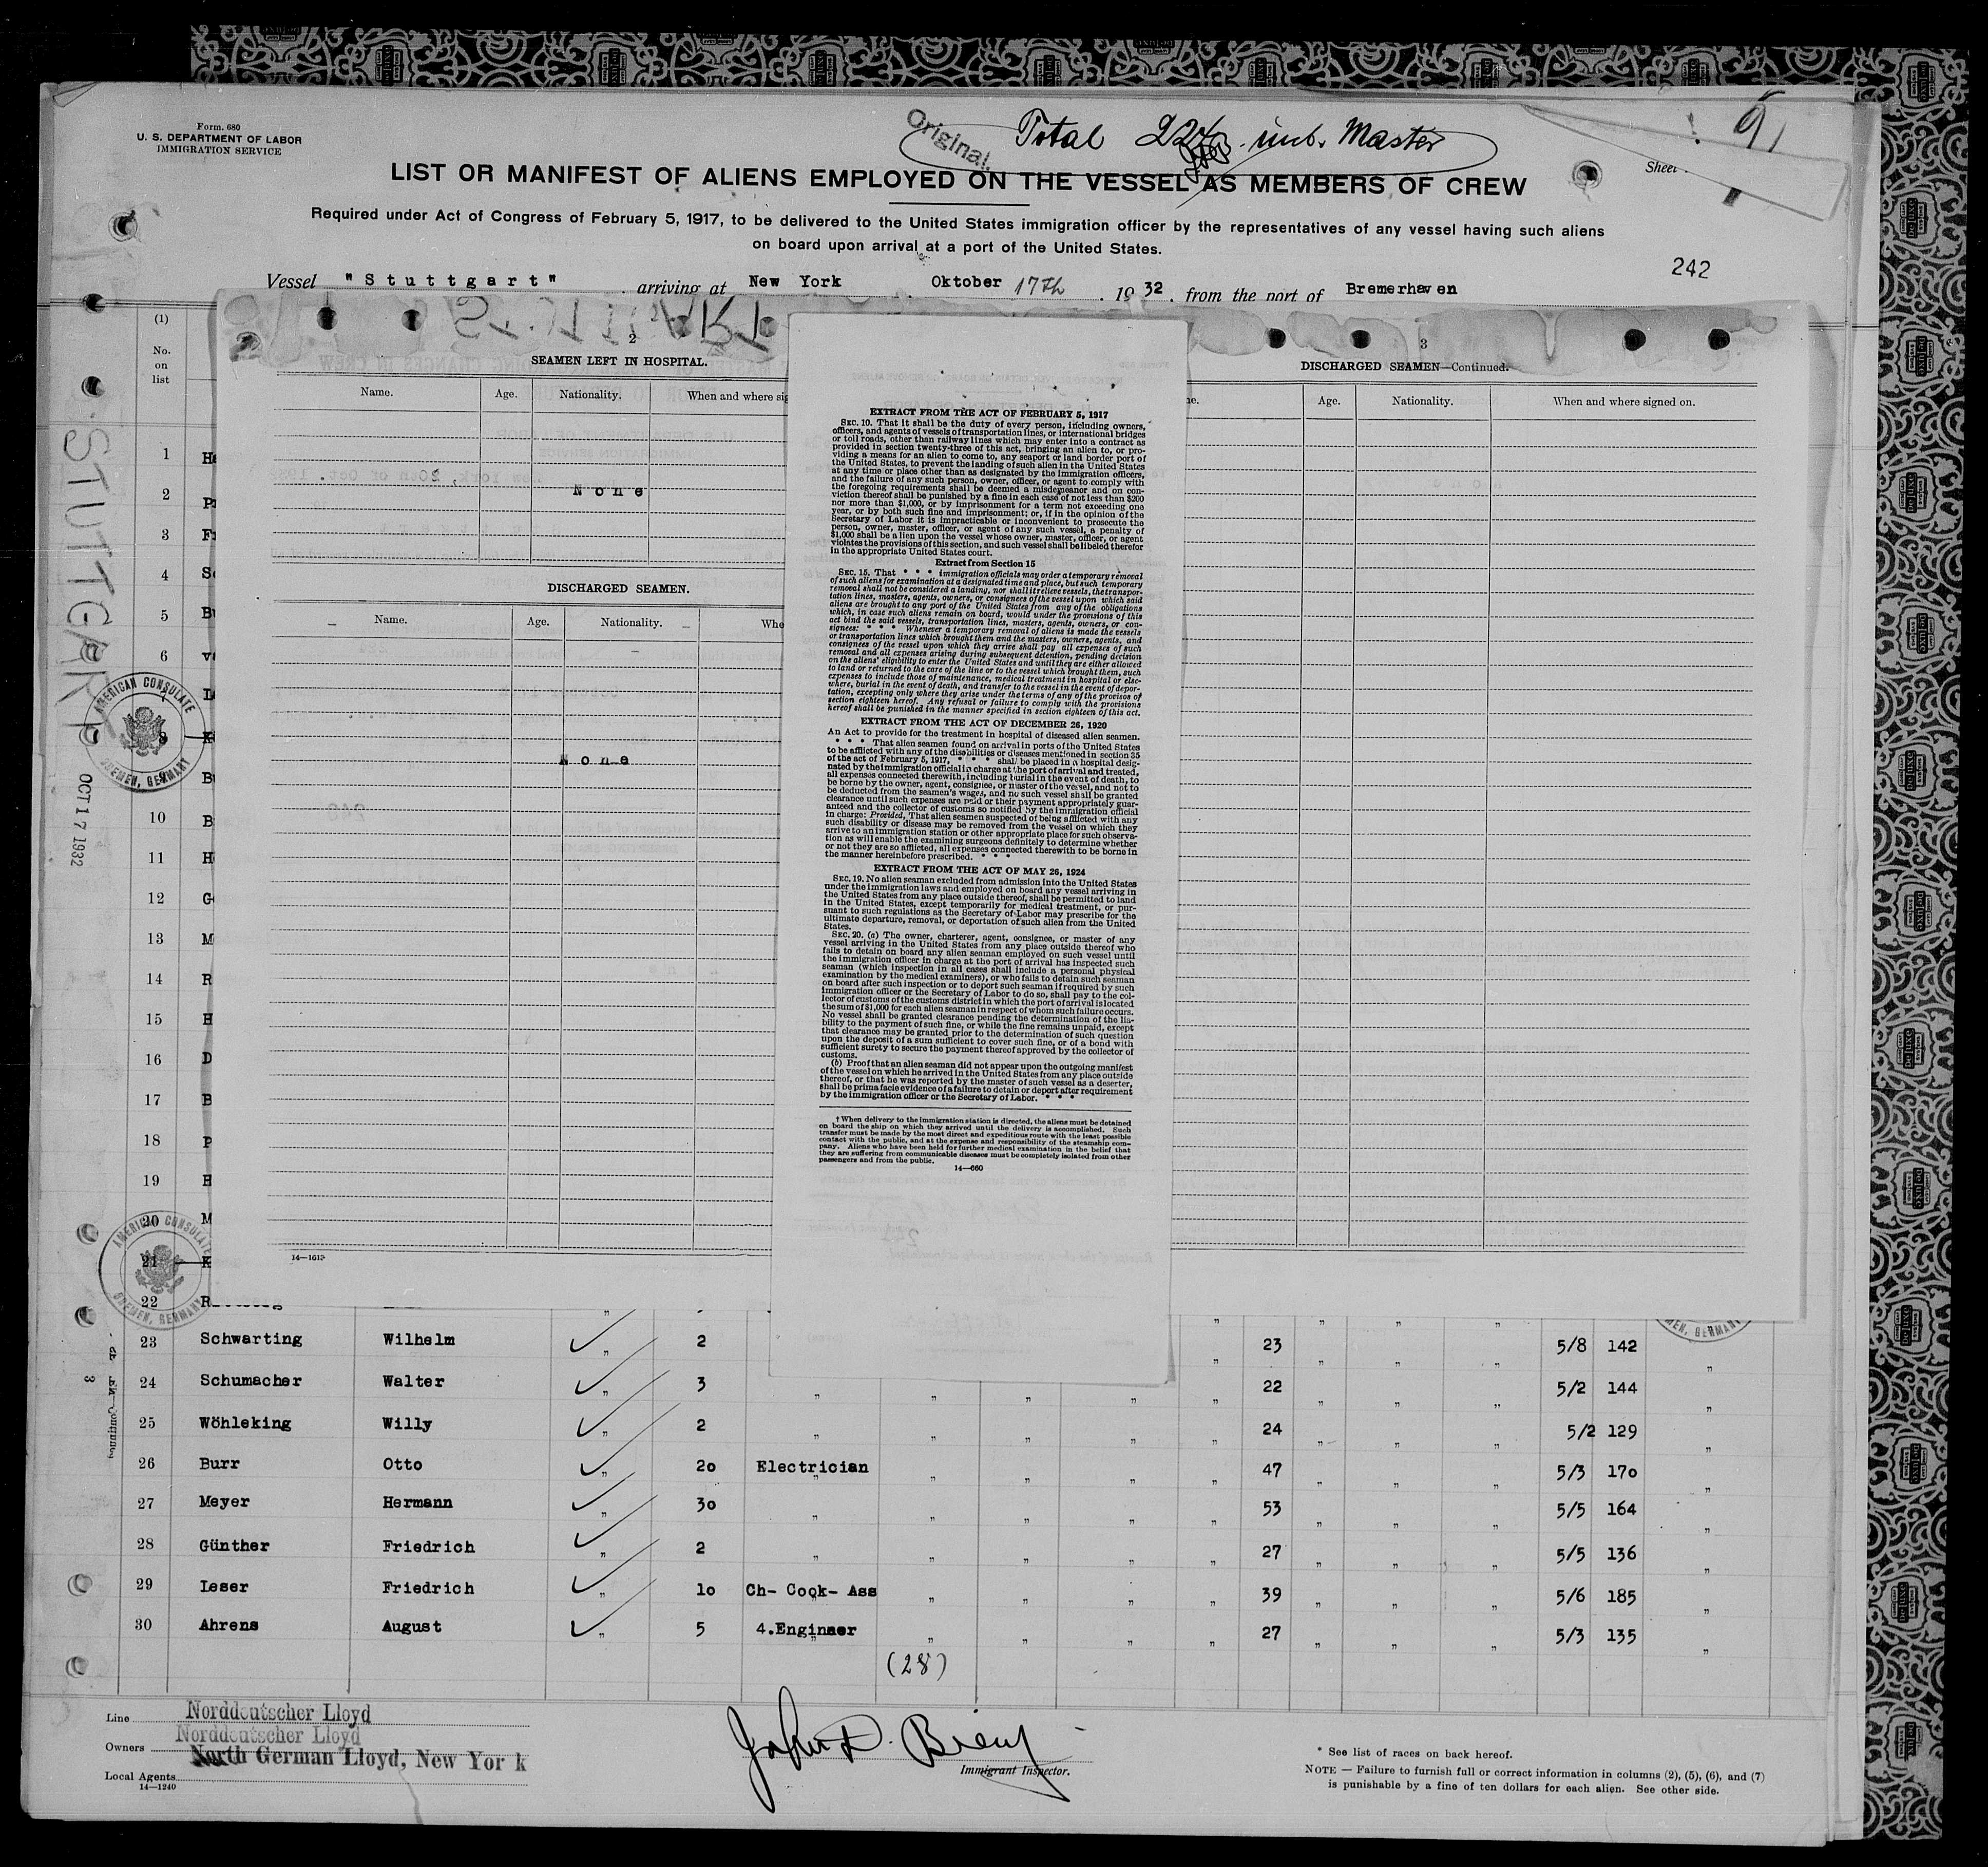 Form. 680
U. S. DEPARTMENT OF LABOR
IMMIGRATION SERVICE
Original
Total Master
LIST OR MANIFEST OF ALIENS EMPLOYED ON THE VESSEL AS MEMBERS OF CREW
Sheet
Required under Act of Congress of February 5, 1917, to be delivered to the United States immigration officer by the representatives of any vessel having such aliens
on board upon arrival at a port of the United States.
242
Vessel "Stuttgart" arriving at New York Oktober 17th, 1932, from the port of Bremerhaven
(1)
No.
on
list
STUTTGART
AMERICAN CONSULATE
BREMEN, GERMANY
OCT 17 1932
2
SEAMEN LEFT IN HOSPITAL.
Name. Age. Nationality. When and where sig
None
DISCHARGED SEAMEN.
Name. Age. Nationality. Whe
None
14—1613
3
DISCHARGED SEAMEN—Continued.
ne. Age. Nationality. When and where signed on.
EXTRACT FROM THE ACT OF FEBRUARY 5, 1917
SEC. 10. That it shall be the duty of every person, including owners,
officers, and agents of vessels of transportation lines, or international bridges
or toll roads, other than railway lines which may enter into a contract as
provided in section twenty-three of this act, bringing an alien to, or pro-
viding a means for an alien to come to, any seaport or land border port of
the United States, to prevent the landing of such alien in the United States
at any time or place other than as designated by the immigration officers,
and the failure of any such person, owner, officer, or agent to comply with
the foregoing requirements shall be deemed a misdemeanor and on con-
viction thereof shall be punished by a fine in each case of not less than $200
nor more than $1,000, or by imprisonment for a term not exceeding one
year, or by both such fine and imprisonment; or, if in the opinion of the
Secretary of Labor it is impracticable or inconvenient to prosecute the
person, owner, master, officer, or agent of any such vessel, a penalty of
$1,000 shall be a lien upon the vessel whose owner, master, officer, or agent
violates the provisions of this section, and such vessel shall be libeled therefor
in the appropriate United States court.
Extract from Section 15
SEC. 15. That * * * immigration officials may order a temporary removal
of such aliens for examination at a designated time and place, but such temporary
removal shall not be considered a landing, nor shall it relieve vessels, the transpor-
tation lines, masters, agents, owners, or consignees of the vessel upon which said
aliens are brought to any port of the United States from any of the obligations
which, in case such aliens remain on board, would under the provisions of this
act bind the said vessels, transportation lines, masters, agents, owners, or con-
signees: * * * Whenever a temporary removal of aliens is made the vessels
or transportation lines which brought them and the masters, owners, agents, and
consignees of the vessel upon which they arrive shall pay all expenses of such
removal and all expenses arising during subsequent detention, pending decision
on the aliens' eligibility to enter the United States and until they are either allowed
to land or returned to the care of the line or to the vessel which brought them, such
expenses to include those of maintenance, medical treatment in hospital or else-
where, burial in the event of death, and transfer to the vessel in the event of depor-
tation, excepting only where they arise under the terms of any of the provisos of
section eighteen hereof. Any refusal or failure to comply with the provisions
hereof shall be punished in the manner specified in section eighteen of this act.
EXTRACT FROM THE ACT OF DECEMBER 26, 1920
An Act to provide for the treatment in hospital of diseased alien seamen.
* * * That alien seamen found on arrival in ports of the United States
to be afflicted with any of the disabilities or diseases mentioned in section 35
of the act of February 5, 1917, * * * shall be placed in a hospital desig-
nated by the immigration official in charge at the port of arrival and treated,
all expenses connected therewith, including burial in the event of death, to
be borne by the owner, agent, consignee, or master of the vessel, and not to
be deducted from the seamen's wages, and no such vessel shall be granted
clearance until such expenses are paid or their payment appropriately guar-
anteed and the collector of customs so notified by the immigration official
in charge: Provided, That alien seamen suspected of being afflicted with any
such disability or disease may be removed from the vessel on which they
arrive to an immigration station or other appropriate place for such observa-
tion as will enable the examining surgeons definitely to determine whether
or not they are so afflicted, all expenses connected therewith to be borne in
the manner hereinbefore prescribed. * * *
EXTRACT FROM THE ACT OF MAY 26, 1924
SEC. 19. No alien seaman excluded from admission into the United States
under the immigration laws and employed on board any vessel arriving in
the United States from any place outside thereof, shall be permitted to land
in the United States, except temporarily for medical treatment, or pur-
suant to such regulations as the Secretary of Labor may prescribe for the
ultimate departure, removal, or deportation of such alien from the United
States.
SEC. 20. (a) The owner, charterer, agent, consignee, or master of any
vessel arriving in the United States from any place outside thereof who
fails to detain on board any alien seaman employed on such vessel until
the immigration officer in charge at the port of arrival has inspected such
seaman (which inspection in all cases shall include a personal physical
examination by the medical examiners), or who fails to detain such seaman
on board after such inspection or to deport such seaman if required by such
immigration officer or the Secretary of Labor to do so, shall pay to the col-
lector of customs of the customs district in which the port of arrival is located
the sum of $1,000 for each alien seaman in respect of whom such failure occurs.
No vessel shall be granted clearance pending the determination of the lia-
bility to the payment of such fine, or while the fine remains unpaid, except
that clearance may be granted prior to the determination of such question
upon the deposit of a sum sufficient to cover such fine, or of a bond with
sufficient surety to secure the payment thereof approved by the collector of
customs.
(b) Proof that an alien seaman did not appear upon the outgoing manifest
of the vessel on which he arrived in the United States from any place outside
thereof, or that he was reported by the master of such vessel as a deserter,
shall be prima facie evidence of a failure to detain or deport after requirement
by the immigration officer or the Secretary of Labor. * * *
† When delivery to the immigration station is directed, the aliens must be detained
on board the ship on which they arrived until the delivery is accomplished. Such
transfer must be made by the most direct and expeditious route with the least possible
contact with the public, and at the expense and responsibility of the steamship com-
pany. Aliens who have been held for further medical examination in the belief that
they are suffering from communicable diseases must be completely isolated from other
passengers and from the public.
14—660
1 He
2 Pr
3 Fr
4 Sc
5 Bu
6 v
7
8 K
9 B
10 B
11 H
12 G
13 M
14 R
15 H
16 D
17 B
18 P
19 H
20 M
21 K
22 R
23 Schwarting Wilhelm " 2 " 23 " " " 5/8 142 "
24 Schumacher Walter " 3 " " " " " 22 " " " 5/2 144 "
25 Wöhleking Willy " 2 " " " " " 24 " " " 5/2 129 "
26 Burr Otto " 20 Electrician " " " " 47 " " " 5/3 170 "
27 Meyer Hermann " 30 " " " " " 53 " " " 5/5 164 "
28 Günther Friedrich " 2 " " " " " 27 " " " 5/5 136 "
29 Leser Friedrich " 10 Ch- Cook- Ass " " " " 39 " " " 5/6 185 "
30 Ahrens August " 5 4.Engineer " " " " 27 " " " 5/3 135 "
(28)
Line Norddeutscher Lloyd
Owners Norddeutscher Lloyd
North German Lloyd, New York
Local Agents
14—1240
John D.
Immigrant Inspector.
* See list of races on back hereof.
NOTE — Failure to furnish full or correct information in columns (2), (5), (6), and (7)
is punishable by a fine of ten dollars for each alien. See other side.